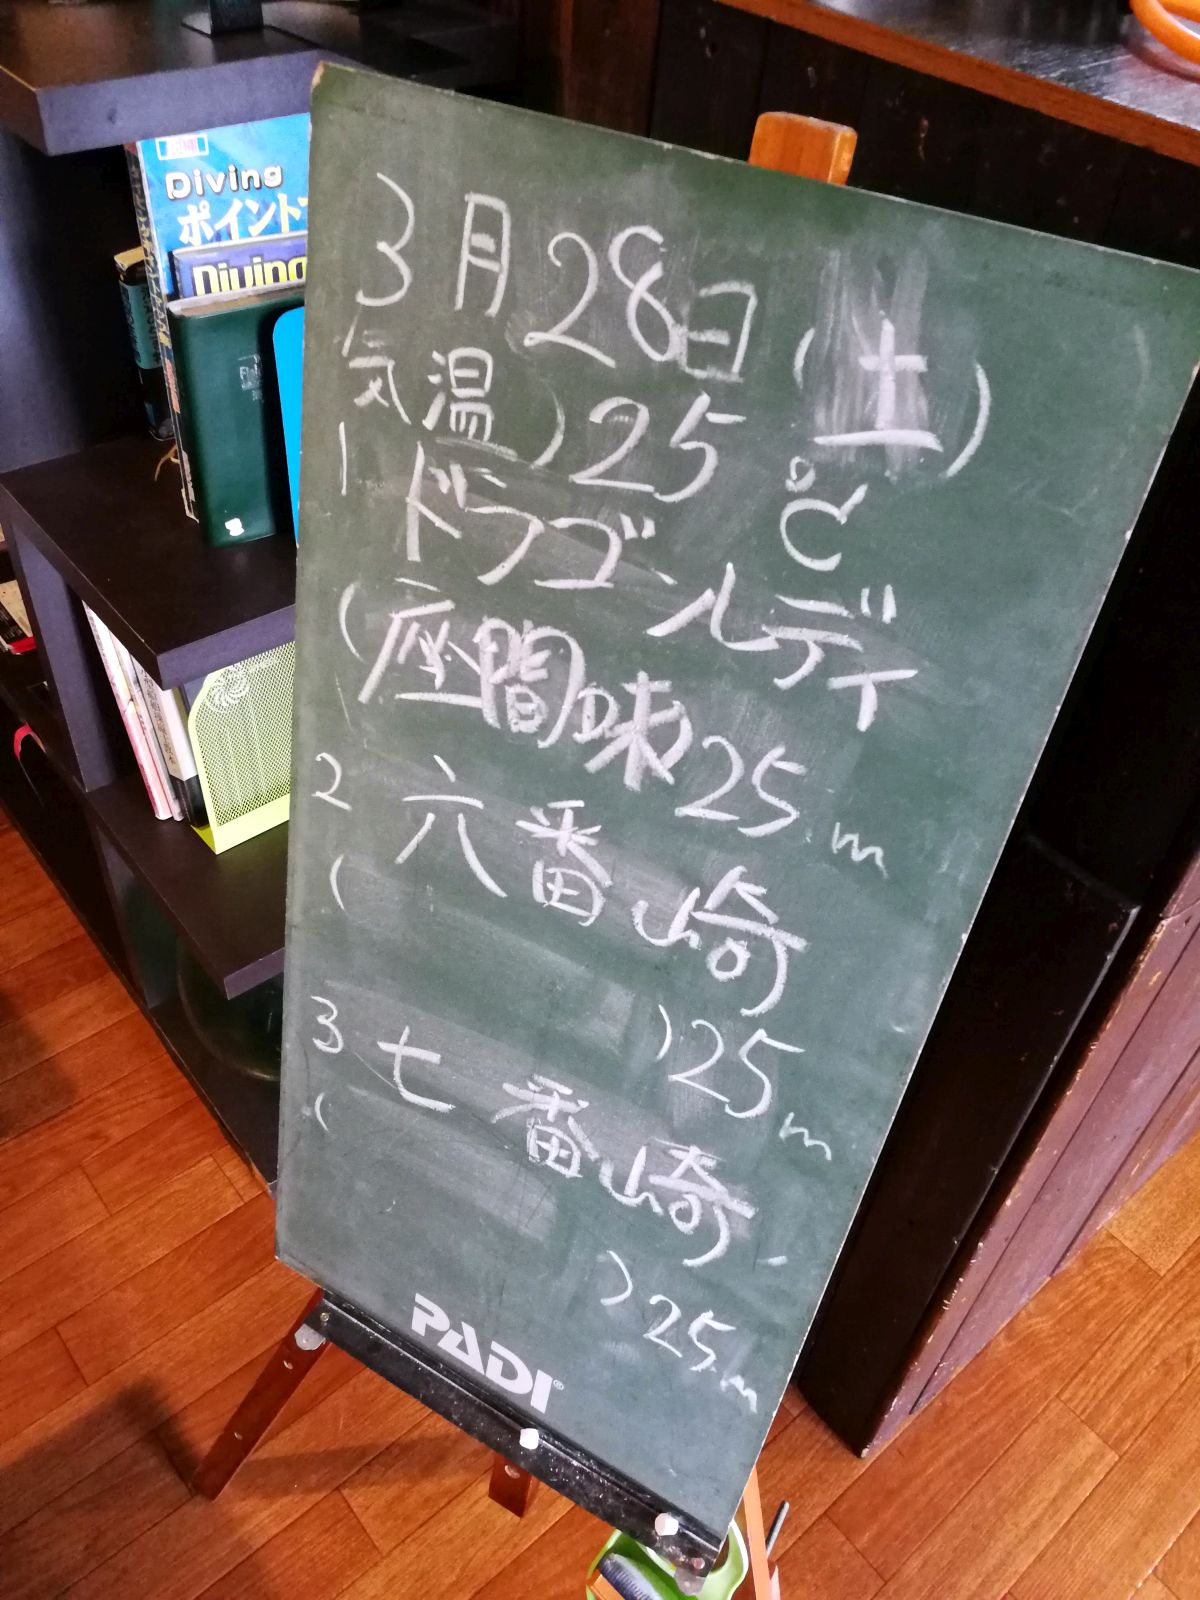 Diving
ポイント
Diving
3月28日(土)
気温)25℃
1 ドラゴンレディ
(座間味25m
2 六番崎
( )25m
3 七番崎
( )25m
PADI®